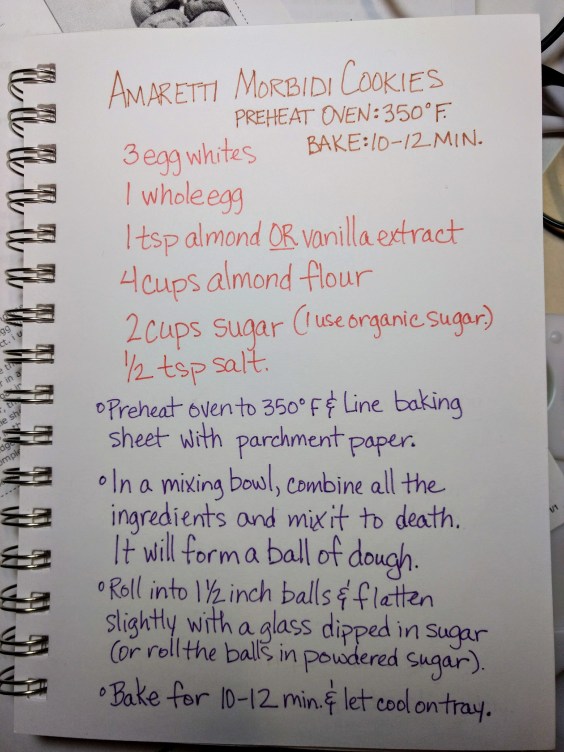 AMARETTI MORBIDI COOKIES
PREHEAT OVEN: 350°F.
BAKE: 10-12 MIN.
3 egg whites
1 whole egg
1 tsp almond OR vanilla extract
4 cups almond flour
2 cups sugar (I use organic sugar.)
1/2 tsp salt.
° Preheat oven to 350°F & Line baking
sheet with parchment paper.
° In a mixing bowl, combine all the
ingredients and mix it to death.
It will form a ball of dough.
° Roll into 1 1/2 inch balls & flatten
slightly with a glass dipped in sugar
(or roll the balls in powdered sugar).
° Bake for 10-12 min. & let cool on tray.